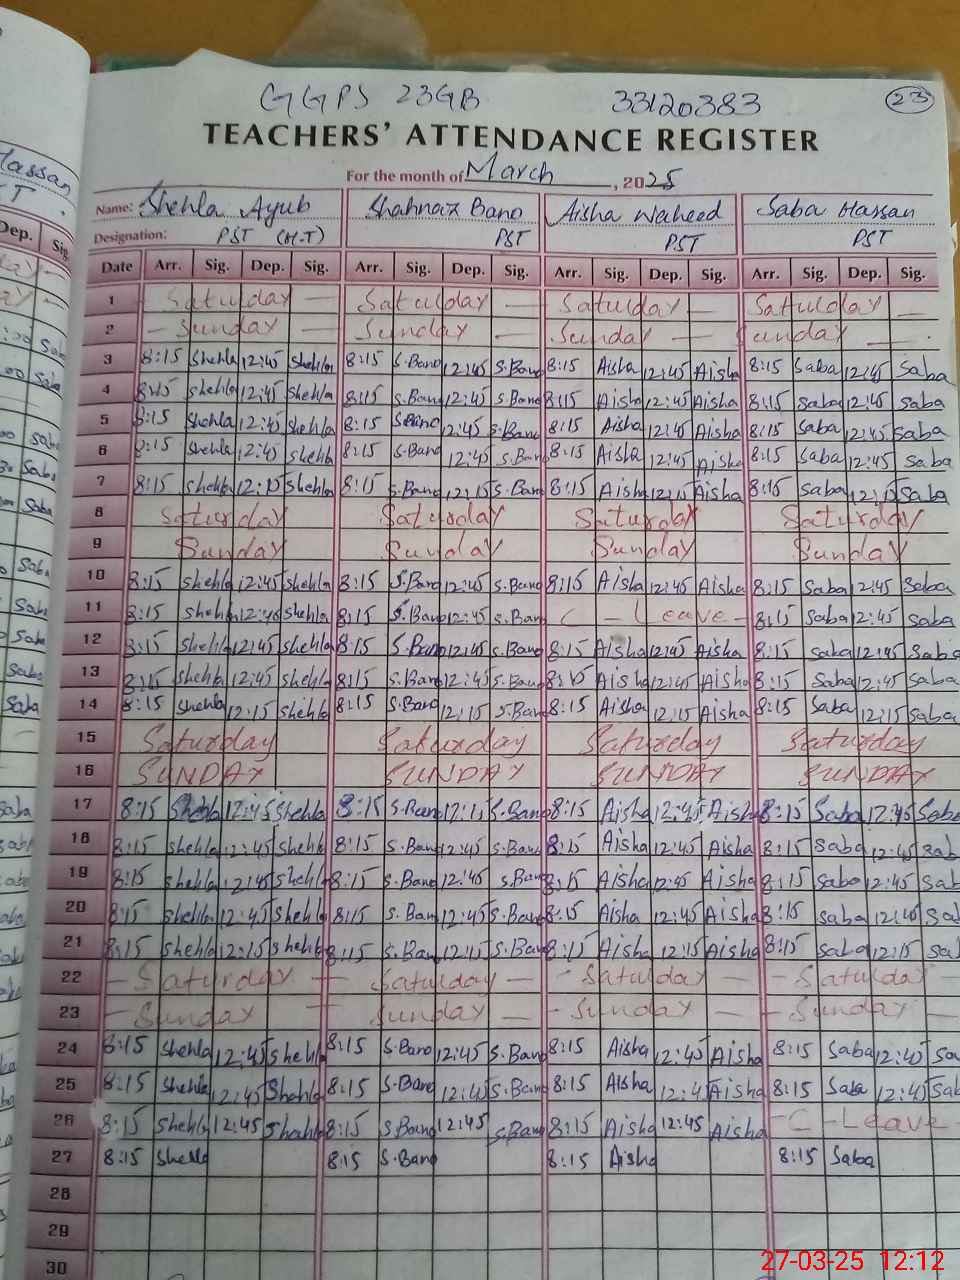 GGPS 23GB 33120383 23
TEACHERS' ATTENDANCE REGISTER
For the month of March, 2025
Name: Shehla Ayub Shahnaz Bano Aisha Waheed Saba Hassan
Designation: PST (H-T) PST PST PST
Date Arr. Sig. Dep. Sig. Arr. Sig. Dep. Sig. Arr. Sig. Dep. Sig. Arr. Sig. Dep. Sig.
1 Saturday Saturday Saturday Saturday
2 Sunday Sunday Sunday Sunday
3 8:15 Shehla 12:45 Shehla 8:15 S.Bano 12:45 S.Bano 8:15 Aisha 12:45 Aisha 8:15 Saba 12:45 Saba
4 8:15 Shehla 12:45 Shehla 8:15 S.Bano 12:45 S.Bano 8:15 Aisha 12:45 Aisha 8:15 Saba 12:45 Saba
5 8:15 Shehla 12:45 Shehla 8:15 S.Bano 12:45 S.Bano 8:15 Aisha 12:45 Aisha 8:15 Saba 12:45 Saba
6 8:15 Shehla 12:45 Shehla 8:15 S.Bano 12:45 S.Bano 8:15 Aisha 12:45 Aisha 8:15 Saba 12:45 Saba
7 8:15 Shehla 12:15 Shehla 8:15 S.Bano 12:15 S.Bano 8:15 Aisha 12:15 Aisha 8:15 Saba 12:15 Saba
8 Saturday Saturday Saturday Saturday
9 Sunday Sunday Sunday Sunday
10 8:15 Shehla 12:45 Shehla 8:15 S.Bano 12:45 S.Bano 8:15 Aisha 12:45 Aisha 8:15 Saba 12:45 Saba
11 8:15 Shehla 12:45 Shehla 8:15 S.Bano 12:45 S.Bano C - Leave - 8:15 Saba 12:45 Saba
12 8:15 Shehla 12:45 Shehla 8:15 S.Bano 12:45 S.Bano 8:15 Aisha 12:45 Aisha 8:15 Saba 12:45 Saba
13 8:15 Shehla 12:45 Shehla 8:15 S.Bano 12:45 S.Bano 8:15 Aisha 12:45 Aisha 8:15 Saba 12:45 Saba
14 8:15 Shehla 12:15 Shehla 8:15 S.Bano 12:15 S.Bano 8:15 Aisha 12:15 Aisha 8:15 Saba 12:15 Saba
15 Saturday Saturday Saturday Saturday
16 SUNDAY SUNDAY SUNDAY SUNDAY
17 8:15 Shehla 12:45 Shehla 8:15 S.Bano S.Bano 8:15 Aisha 12:45 Aisha 8:15 Saba 12:45 Saba
18 8:15 Shehla 12:45 Shehla 8:15 S.Bano 12:45 S.Bano 8:15 Aisha 12:45 Aisha 8:15 Saba 12:45 Sab
19 8:15 Shehla 12:45 Shehla 8:15 S.Bano 12:45 S.Bano 8:15 Aisha 12:45 Aisha 8:15 Saba 12:45 Sab
20 8:15 Shehla 12:45 Shehla 8:15 S.Bano 12:45 S.Bano 8:15 Aisha 12:45 Aisha 8:15 Saba 12:45 Sab
21 8:15 Shehla 12:15 Shehla 8:15 S.Bano 12:15 S.Bano 8:15 Aisha 12:15 Aisha 8:15 Saba 12:15 Sab
22 - Saturday - Saturday - - Saturday - - Saturday
23 - Sunday - Sunday - - Sunday - - Sunday -
24 8:15 Shehla 12:45 Shehla 8:15 S.Bano 12:45 S.Bano 8:15 Aisha 12:45 Aisha 8:15 Saba 12:45 Sa
25 8:15 Shehla 12:45 Shehla 8:15 S.Bano 12:45 S.Bano 8:15 Aisha 12:45 Aisha 8:15 Saba 12:45 Sab
26 8:15 Shehla 12:45 Shehla 8:15 S.Bano 12:45 S.Bano 8:15 Aisha 12:45 Aisha - C - Leave -
27 8:15 Shehla 8:15 S.Bano 8:15 Aisha 8:15 Saba
28
29
30
27-03-25 12:12